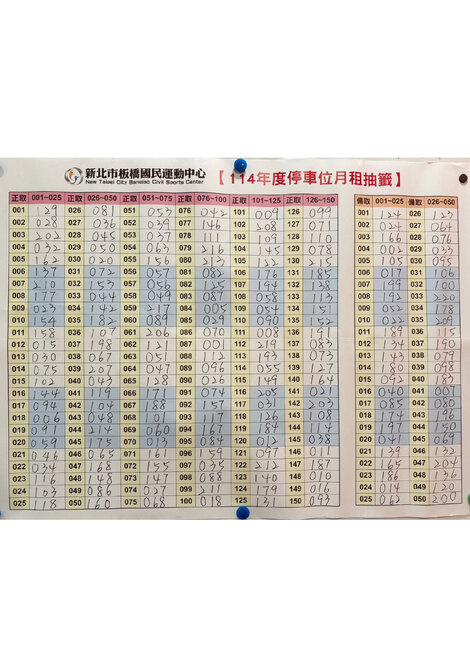 新北市板橋國民運動中心
New Taipei City Banqiao Civil Sports Center
【114年度停車位月租抽籤】
正取 001~025 正取 026~050 正取 051~075 正取 076~100 正取 101~125 正取 126~150 備取 001~025 備取 026~050
001 129 026 081 051 053 076 042 101 009 126 099 001 026 123
002 028 027 036 052 039 077 146 102 208 127 071 002 027 064
003 202 028 045 053 037 078 103 109 128 110 003 166 028 076
004 032 029 050 054 063 079 216 104 145 129 078 004 002 029 033
005 162 030 020 055 056 080 213 105 122 130 215 005 105 030 095
006 137 031 072 056 057 081 082 106 176 131 185 006 017 031 106
007 210 032 153 057 056 082 125 107 194 132 138 007 199 032 100
008 177 033 044 058 049 083 087 108 058 133 113 008 992 033 220
009 023 034 142 059 217 084 005 109 054 134 151 009 052 034 178
010 154 035 182 060 089 085 029 110 090 135 152 010 022 035 209
011 158 036 107 061 206 086 070 111 008 136 141 011 189 036 115
012 015 037 098 062 121 087 001 112 219 137 083 012 134 037 190
013 030 038 067 063 051 088 112 113 193 138 073 013 143 038 079
014 075 039 207 064 047 089 114 055 139 127 014 180 039 098
015 102 040 043 065 128 090 026 115 149 140 164 015 092 040 183
016 144 041 119 066 171 091 074 116 205 141 021 016 040 041 001
017 094 042 104 067 188 092 157 117 031 142 203 017 085 042 080
018 006 043 048 068 101 093 111 118 143 135 018 174 043 196
019 044 069 060 094 167 119 084 144 114 019 197 044 150
020 059 045 175 070 013 095 084 120 012 145 038 020 041 045 069
021 046 046 165 071 161 096 159 121 097 146 011 021 139 046 132
022 034 047 168 072 155 097 035 122 212 147 187 022 165 047 204
023 116 048 148 073 147 098 088 123 140 148 010 023 186 048 136
024 103 049 086 074 027 099 211 124 179 149 016 024 014 049 120
025 118 050 160 075 068 100 018 125 131 150 093 025 062 050 200